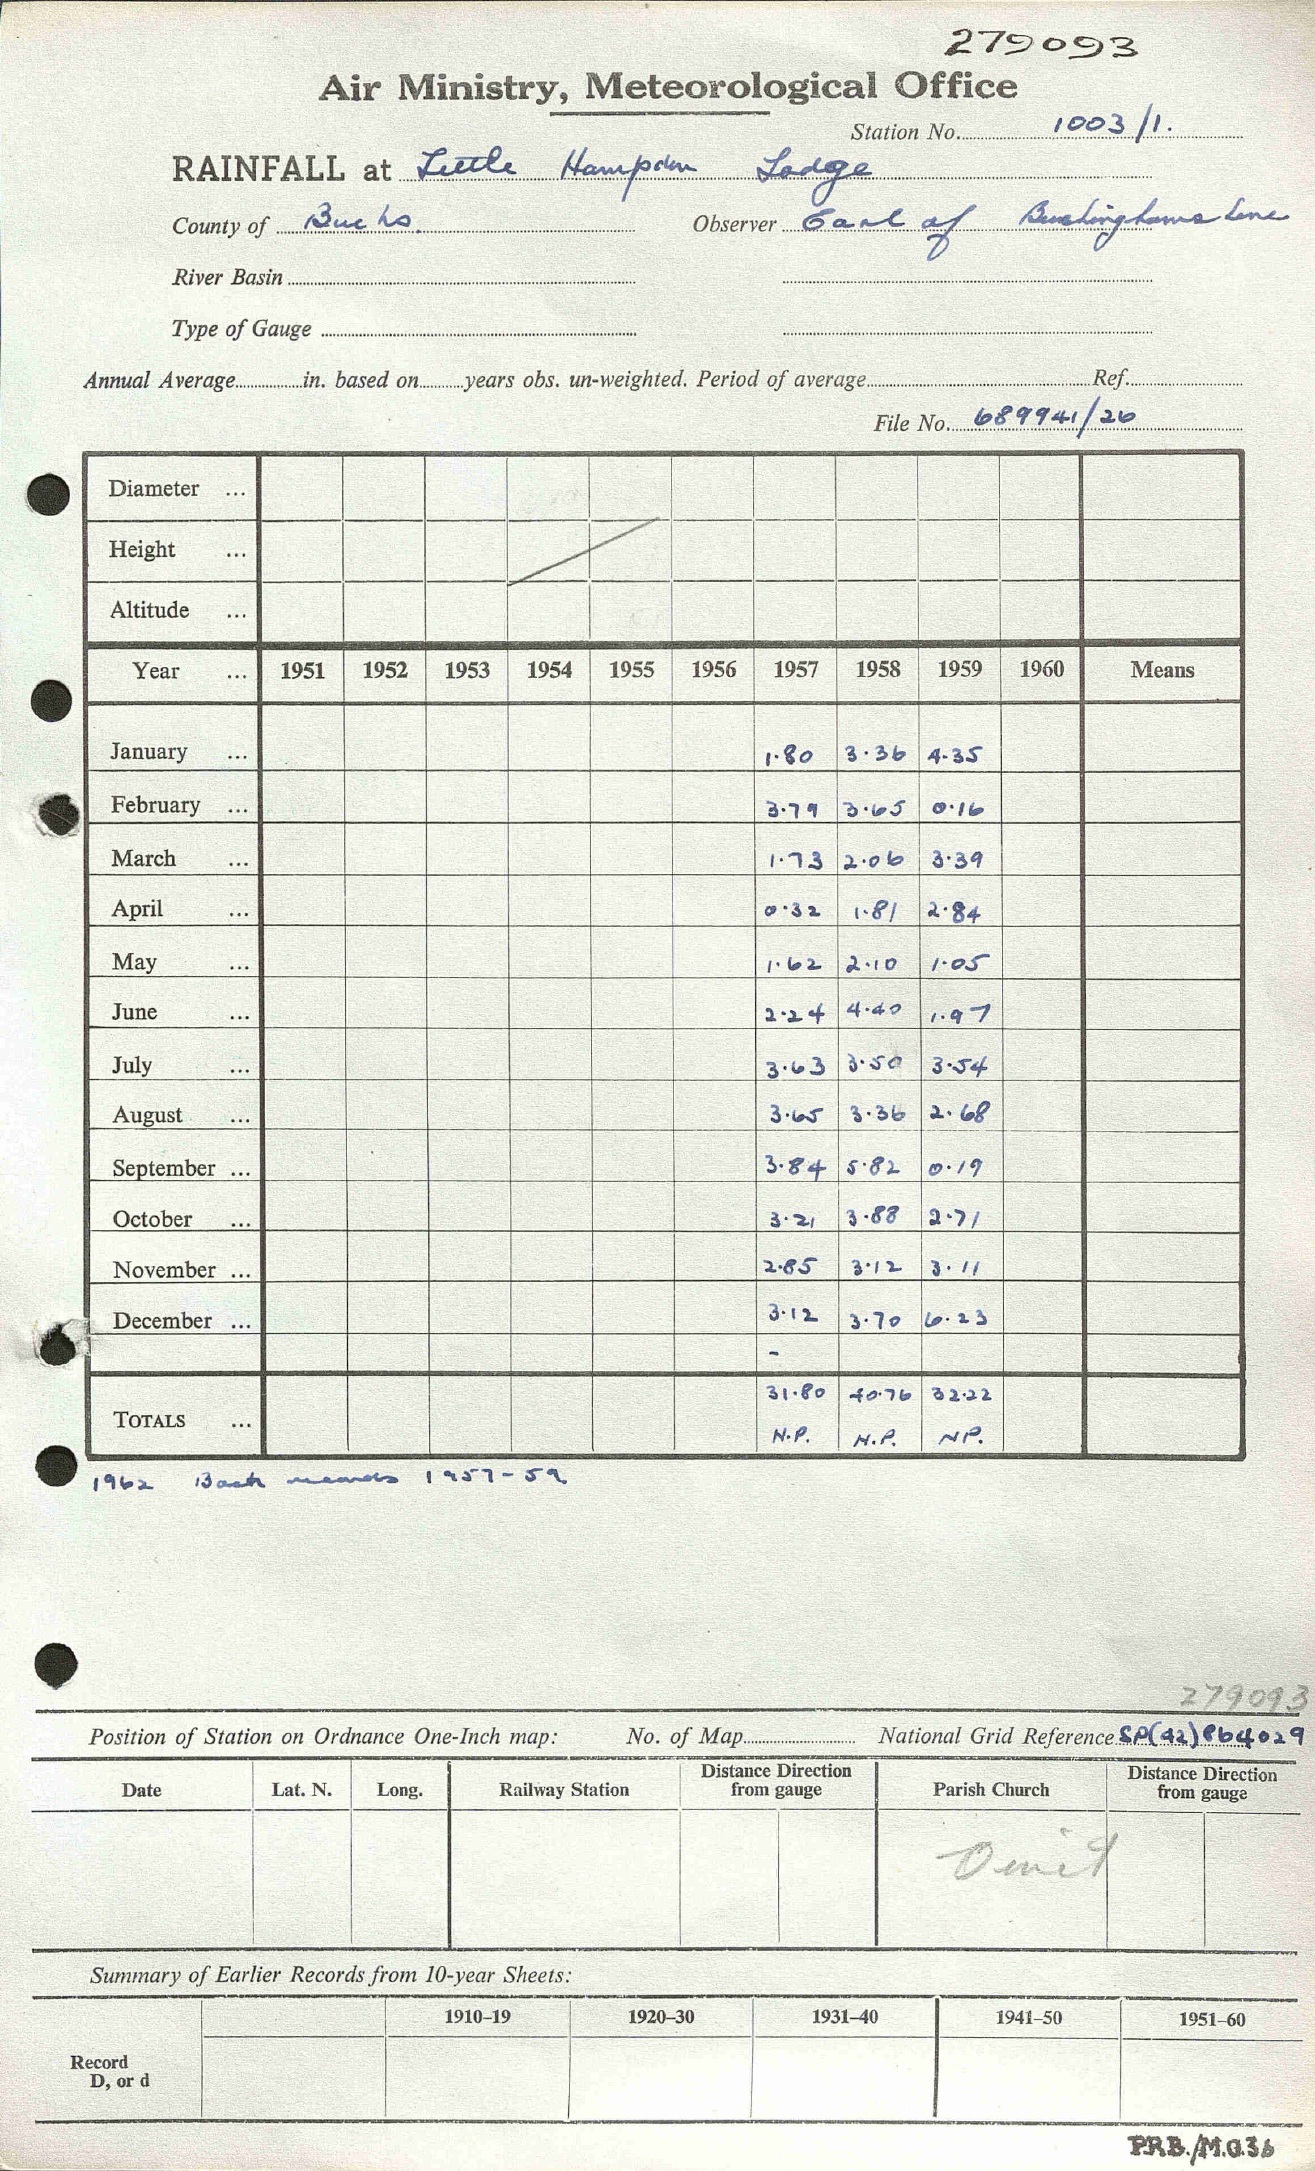 279093
Air Ministry, Meteorological Office
Station No. 1003/1.
RAINFALL at Little Hampden Lodge
County of Bucks. Observer Earl of Buckinghamshire
River Basin
Type of Gauge
Annual Average in. based on years obs. un-weighted. Period of average Ref.
File No. 689941/26
Diameter ...
Height ...
Altitude ...
Year ... 1951 1952 1953 1954 1955 1956 1957 1958 1959 1960 Means
January ... 1.80 3.36 4.35
February ... 3.79 3.65 0.16
March ... 1.73 2.06 3.39
April ... 0.32 1.81 2.84
May ... 1.62 2.10 1.05
June ... 2.24 4.40 1.97
July ... 3.63 3.50 3.54
August ... 3.65 3.36 2.68
September ... 3.84 5.82 0.19
October ... 3.21 3.88 2.71
November ... 2.85 3.12 3.11
December ... 3.12 3.70 6.23
-
TOTALS ... 31.80 40.76 32.22
N.P. N.P. NP.
1962 Back records 1957-59
279093
Position of Station on Ordnance One-Inch map: No. of Map National Grid Reference SP(42)864029
Date Lat. N. Long. Railway Station Distance Direction from gauge Parish Church Distance Direction from gauge
Omit
Summary of Earlier Records from 10-year Sheets:
1910–19 1920–30 1931–40 1941–50 1951–60
Record
D, or d
P.R.B./M.O.36